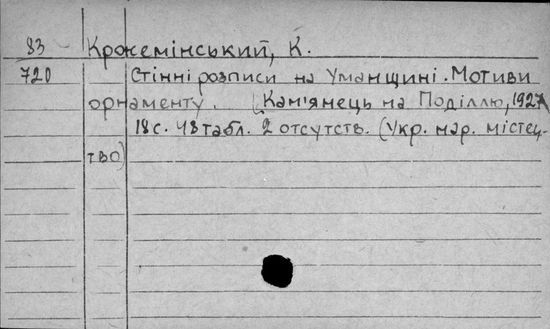 83 Кржемінський, К.
720 Стінні розписи на Уманщині. Мотиви
орнаменту. [Кам'янець на Поділлю, 1927]
18 с. 48 табл. 2 отсутств. (Укр. нар. містец-
тво)